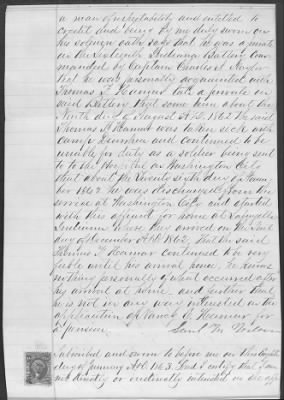 a man of respectability and entitled to
credit and being by me duly sworn on
his solemn oath says that he was a private
in the Sixteenth Indiana Battery com
manded by Captain Charles A Naylor
that he was personally acquainted with
Thomas F Hamar late a private in
said Battery that some time about the
Ninth day of August A.D. 1862 the said
Thomas F. Hamar was taken sick with
camp diarrhea and continued to be
unable for duty as a soldier being sent
to the Hospital in Washington City
that about the Twenty sixth day of Novem
ber 1862 he was discharged from the
service at Washington City and started
with this affiant for home at Lafayette
Indiana where they arrived on the
day of December A.D. 1862, that the said
Thomas F. Hamar continued to be very
feeble until his arrival home, he knows
nothing personally of what occurred after
his arrival at home and further that
he is not in any way interested in the
application of Nancy J. Hamar for
a pension. Saml M. Wilson
Subscribed and sworn to before me on this
day of January A.D. 1863 And I certify that I am
not directly or indirectly interested in the app